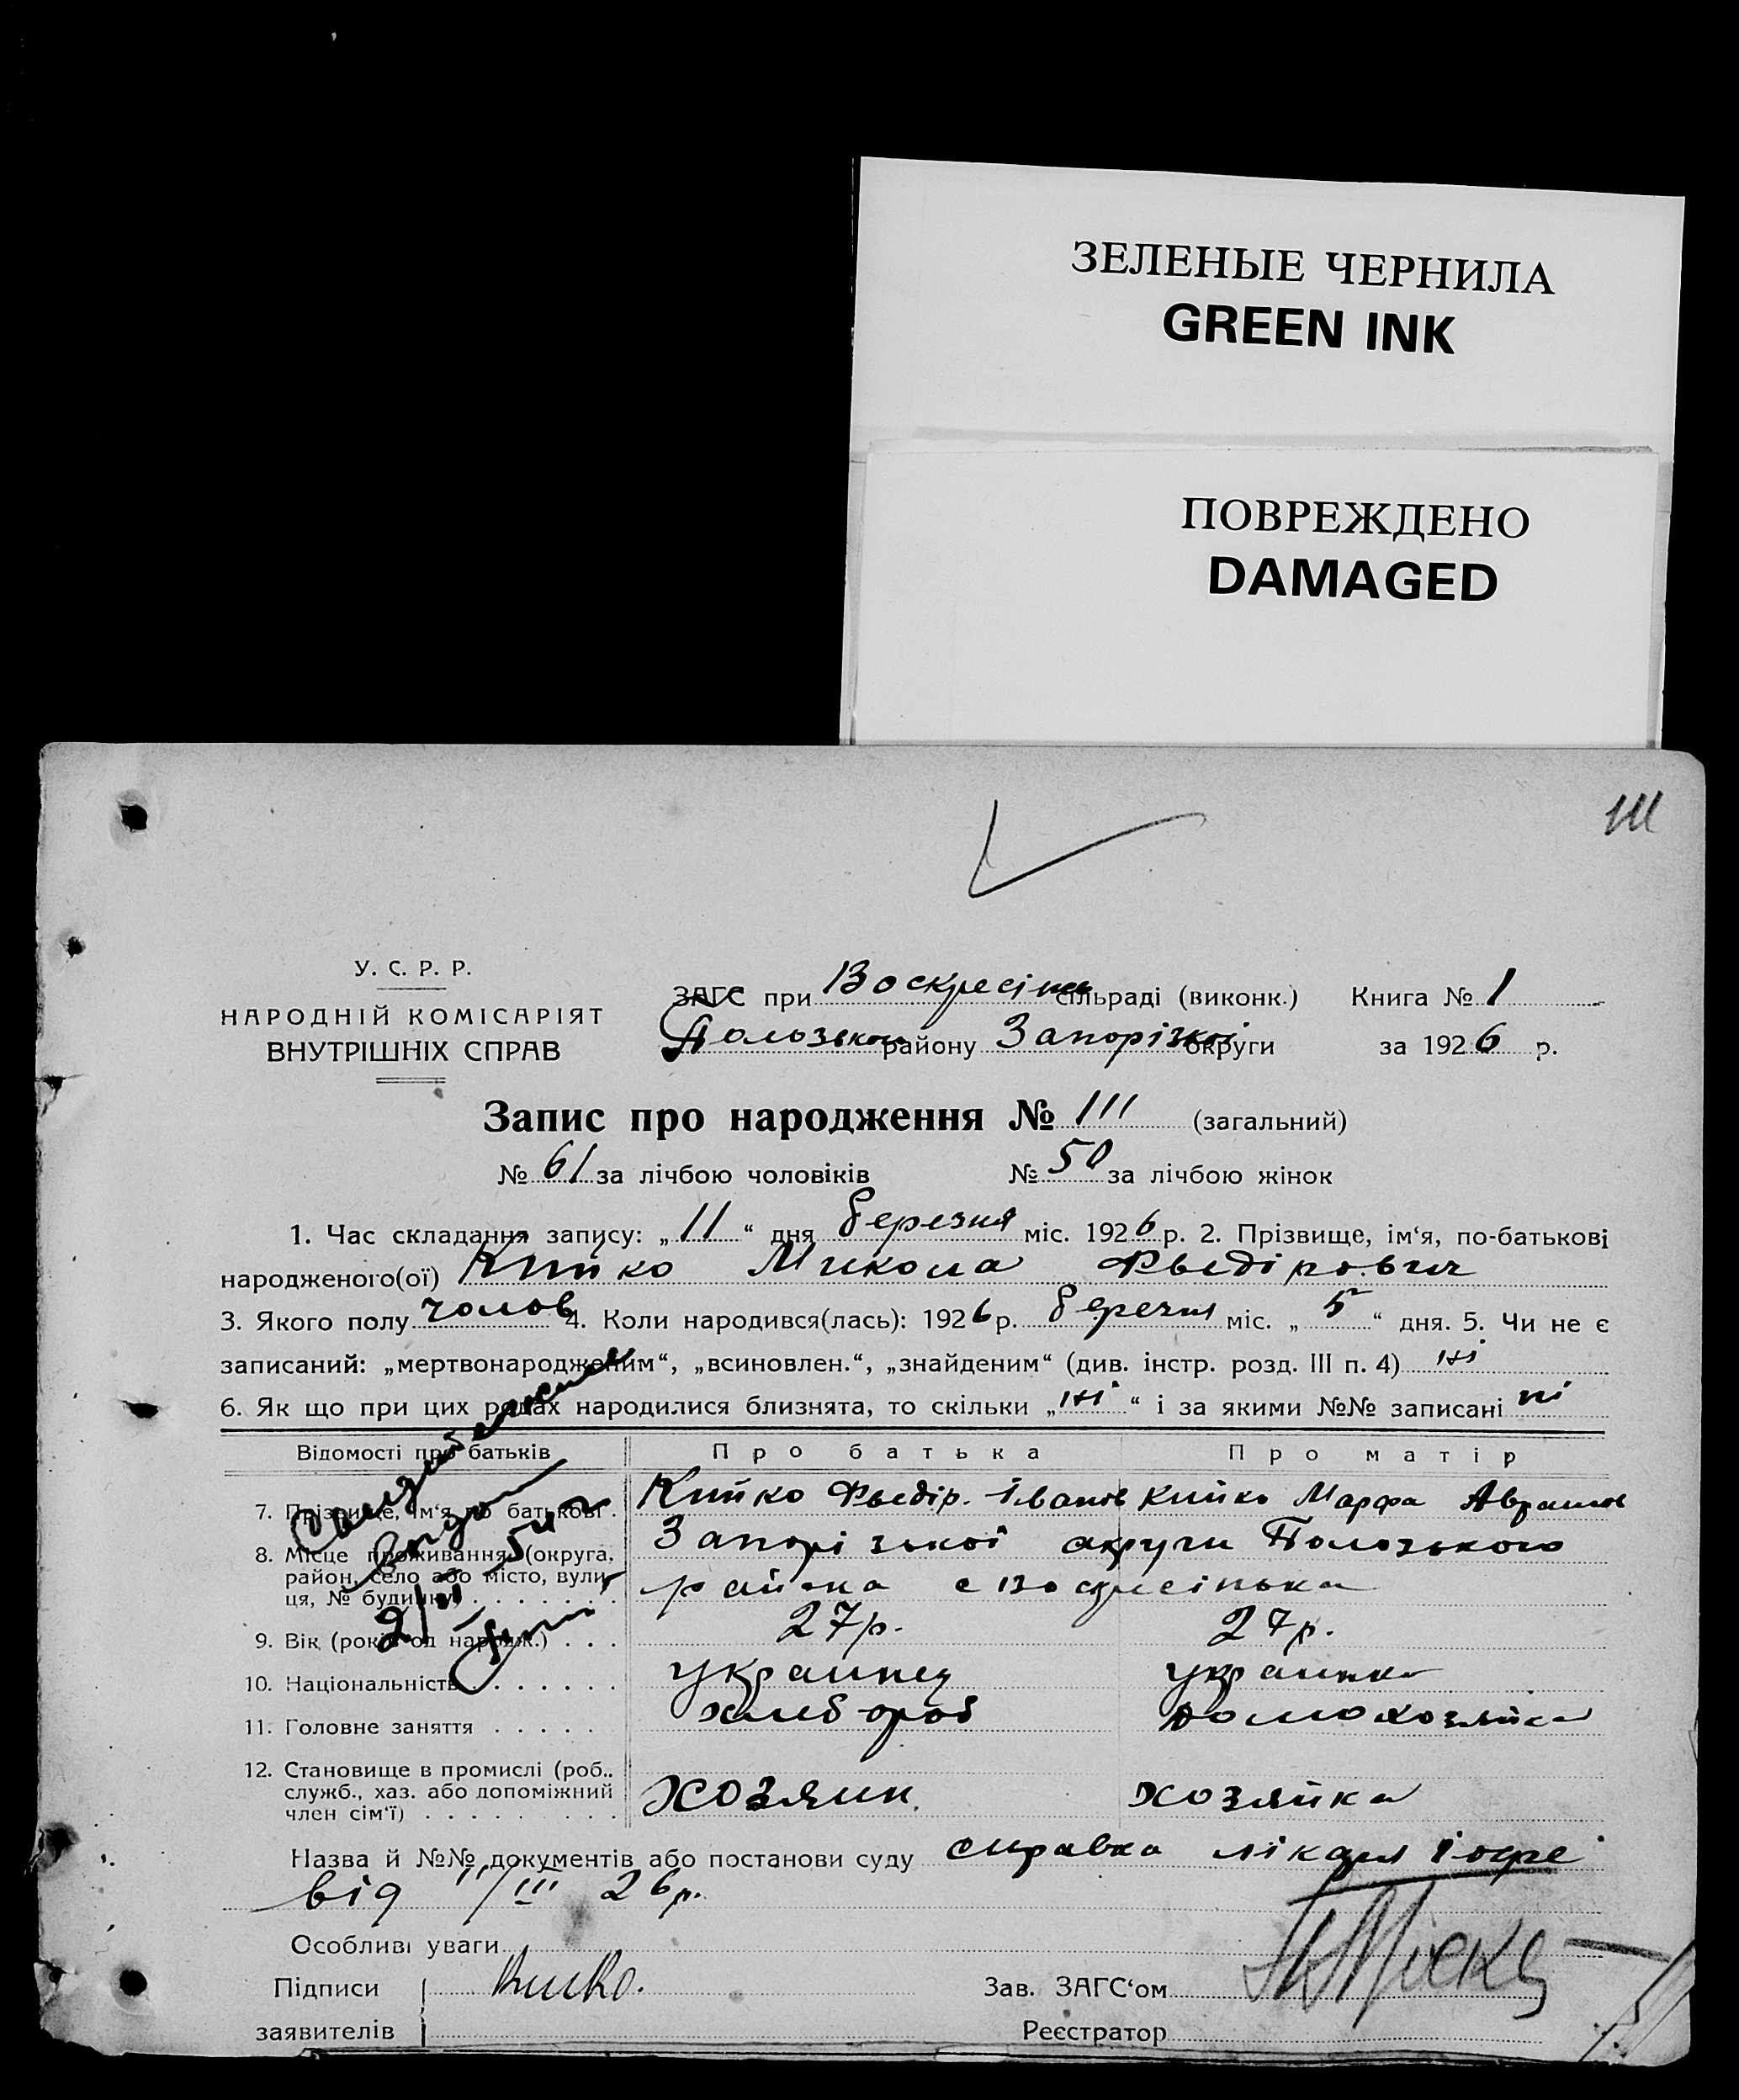 ЗЕЛЕНЫЕ ЧЕРНИЛА
GREEN INK
ПОВРЕЖДЕНО
DAMAGED
111
У. С. Р. Р.
НАРОДНІЙ КОМІСАРІЯТ
ВНУТРІШНІХ СПРАВ
ЗАГС при Воскресінь сільраді (виконк.) Книга № 1
Полозьком району Запорізкої округи за 1926 р.
Запис про народження № 111 (загальний)
№ 61 за лічбою чоловіків № 50 за лічбою жінок
1. Час складання запису: „11“ дня березня міс. 1926 р. 2. Прізвище, ім‘я, по-батькові
народженого(ої) Кийко Микола Фьедірович
3. Якого полу чолов 4. Коли народився(лась): 1926 р. березня міс. „5“ дня. 5. Чи не є
записаний: „мертвонародженим“, „всиновлен.“, „знайденим“ (див. інстр. розд. III п. 4) ні
6. Як що при цих родах народилися близнята, то скільки „ні“ і за якими №№ записані ні
Відомості про батьків Про батька Про матір
7. Прізвище, ім‘я по батькові . Кийко Фьедір. Іванов Кийко Марфа Аврамов
8. Місце проживання (округа, район, село або місто, вулиця, № будинку) Запорізької округи Полозького
района с Воскресінька
9. Вік (років од народж.) . . . 27 р. 27 р.
10. Національність . . . . . . украинец украинка
11. Головне заняття . . . . . хлебороб домохозяйка
12. Становище в промислі (роб., служб., хаз. або допоміжний член сім‘ї) хозяин. хозяйка
Назва й №№ документів або постанови суду справка лікаря Іофе
від 11/III 26 р.
Особливі уваги
Підписи Кийко. Зав. ЗАГС‘ом
заявителів Реєстратор